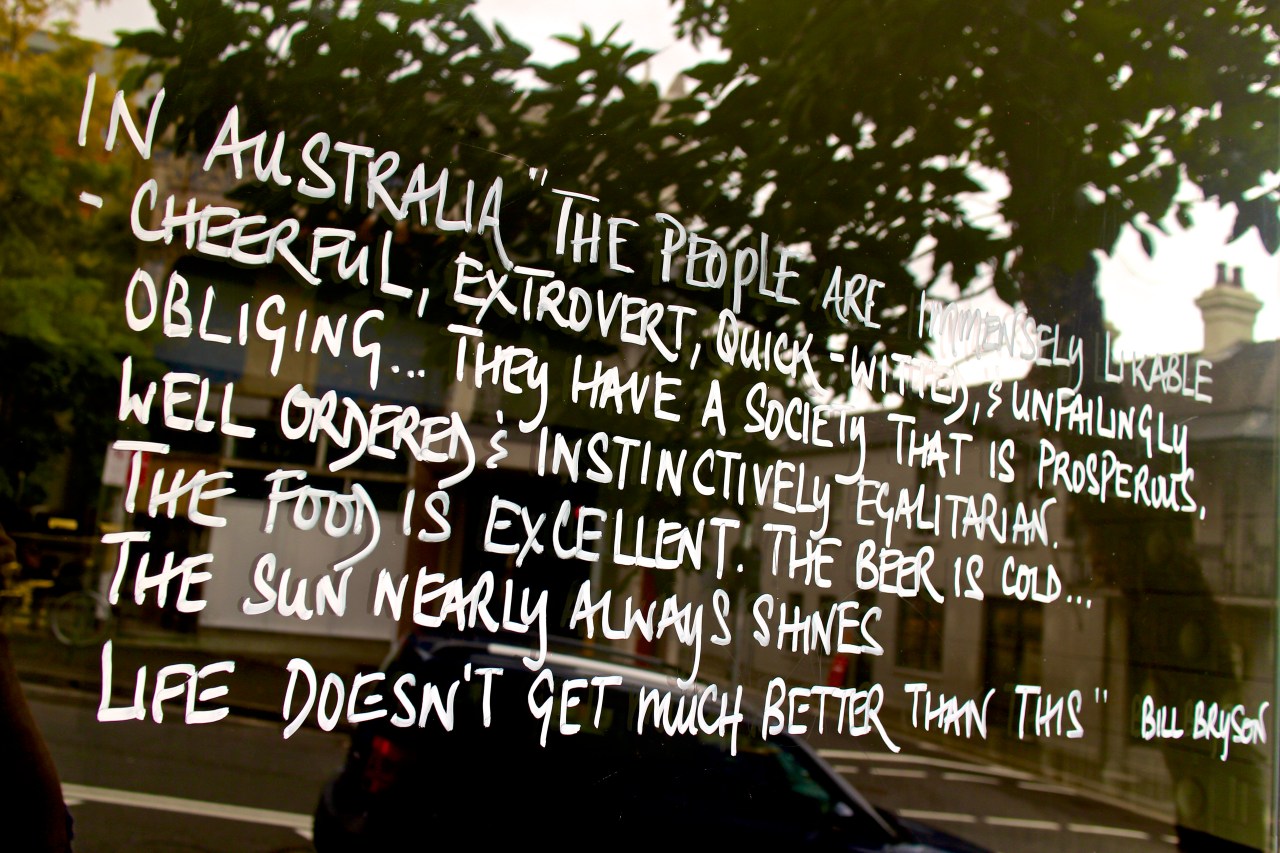 IN AUSTRALIA "THE PEOPLE ARE IMMENSELY LIKABLE
- CHEERFUL, EXTROVERT, QUICK-WITTED, & UNFAILINGLY
OBLIGING... THEY HAVE A SOCIETY THAT IS PROSPEROUS,
WELL ORDERED & INSTINCTIVELY EGALITARIAN.
THE FOOD IS EXCELLENT. THE BEER IS COLD...
THE SUN NEARLY ALWAYS SHINES
LIFE DOESN'T GET MUCH BETTER THAN THIS" BILL BRYSON